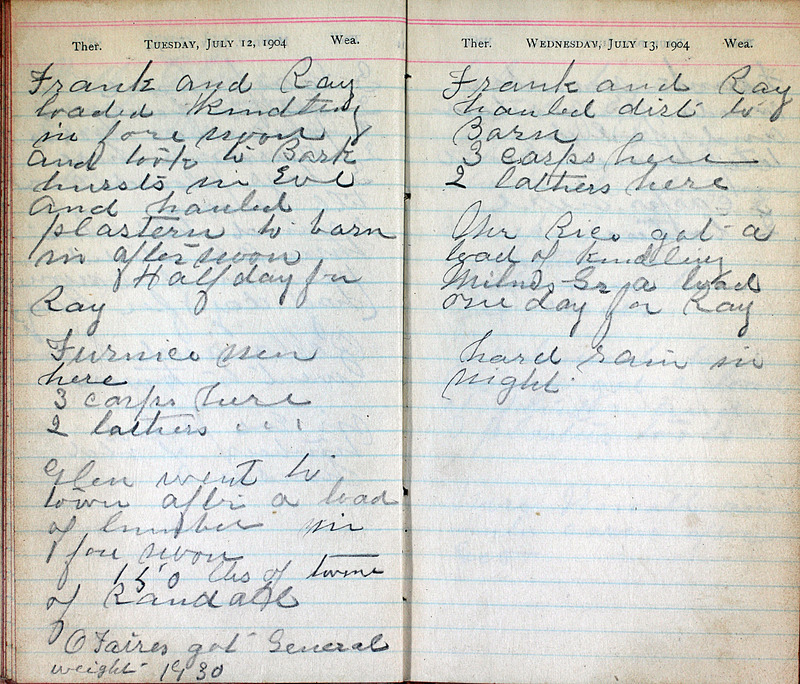 Ther. TUESDAY, JULY 12, 1904 Wea.
Frank and Ray
loaded kindling
in fore noon
and took to Bark
hursts in Eve
and hauled
plastern to barn
in afternoon
Half day for
Ray
Furnice men
here
3 carps here
2 lathers " " "
Glen went to
town after a load
of lumber in
fore noon
150 lbs of twine
of Randall
O Faires got General
weight 1930
Ther. WEDNESDAY, JULY 13, 1904 Wea.
Frank and Ray
hauled dirt to
Barn
3 carps here
2 lathers here
Mr Rice got a
load of kindling
a load
one day for Ray
hard rain in
night.